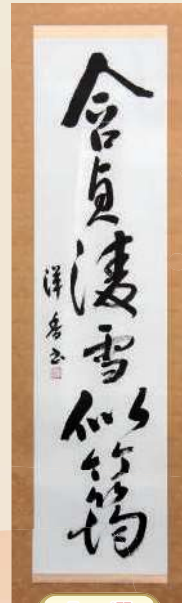 含貞凌雪似竹筠
洋香书